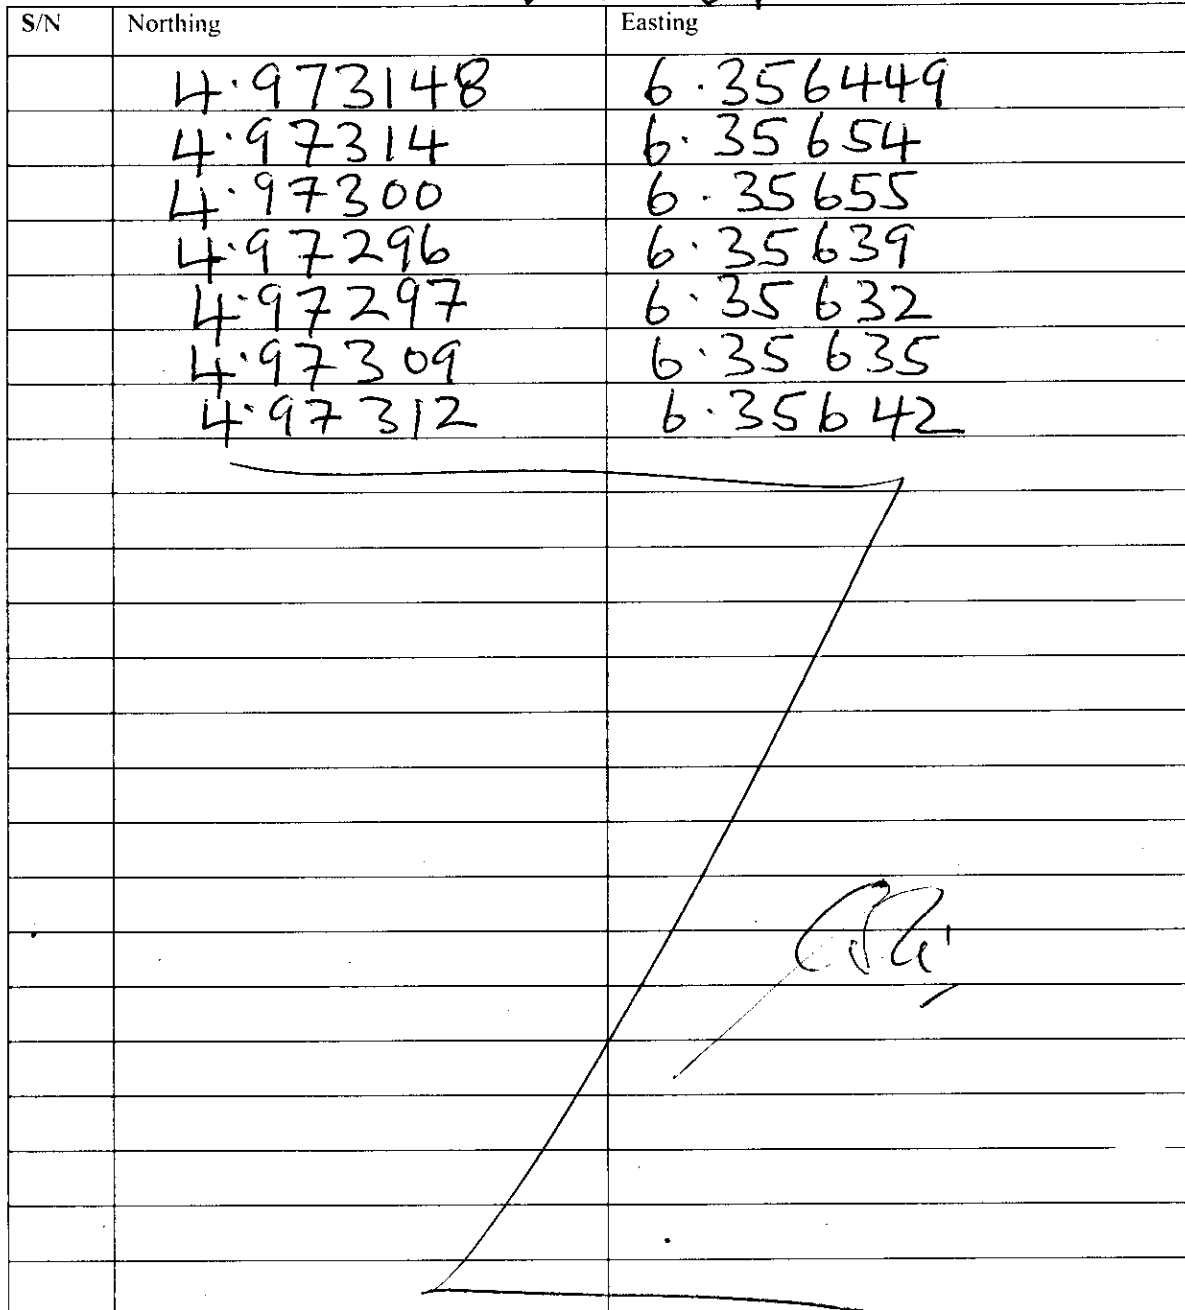 S/N Northing Easting
4.973148 6.356449
4.97314 6.35654
4.97300 6.35655
4.97296 6.35639
4.97297 6.35632
4.97309 6.35635
4.97312 6.35642